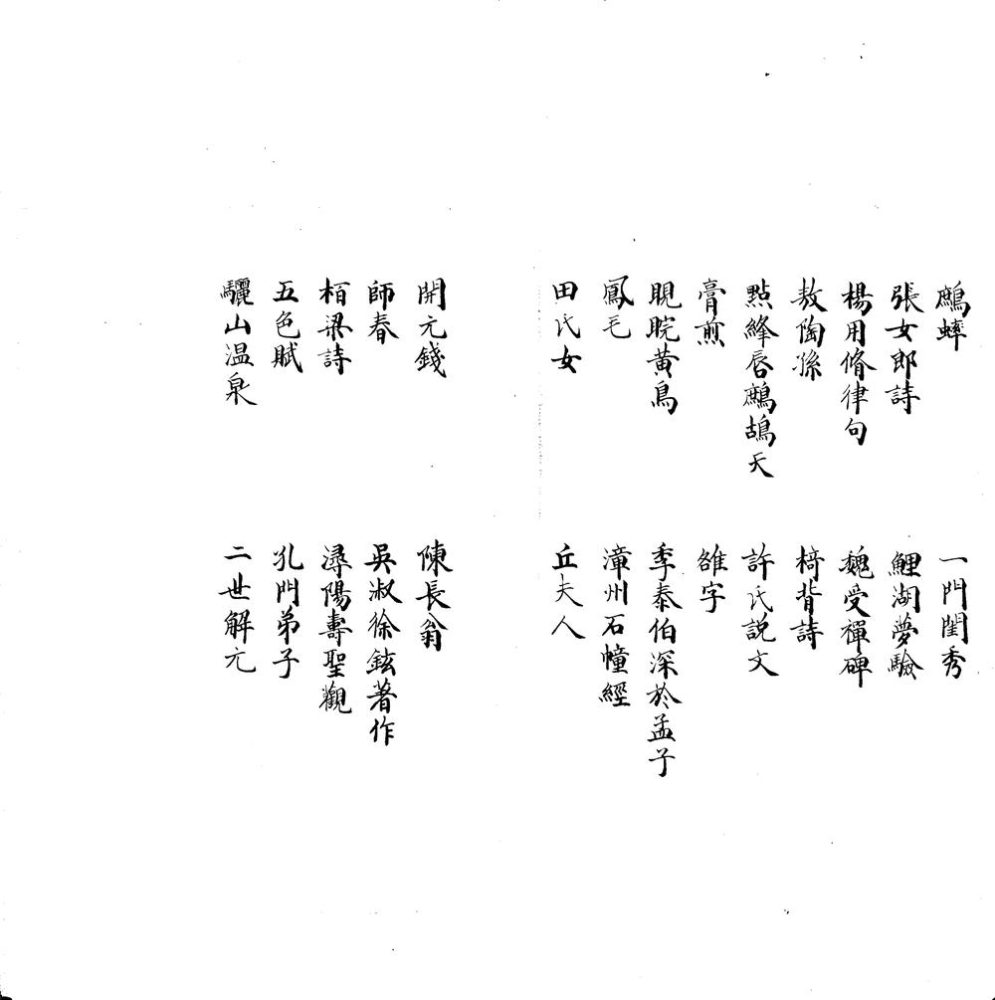 鷓蟀 一門閨秀
張女郎詩 鯉湖夢驗
楊用脩律句 魏受禪碑
敖陶孫 椅背詩
點絳唇鷓鴣天 許氏說文
膏煎 雒字
睍睆黃鳥 季泰伯深於孟子
鳳毛 漳州石幢經
田氏女 丘夫人
開元錢 陳長翁
師春 吳淑徐鉉著作
栢梁詩 潯陽壽聖觀
五色賦 孔門弟子
驪山温泉 二世解元